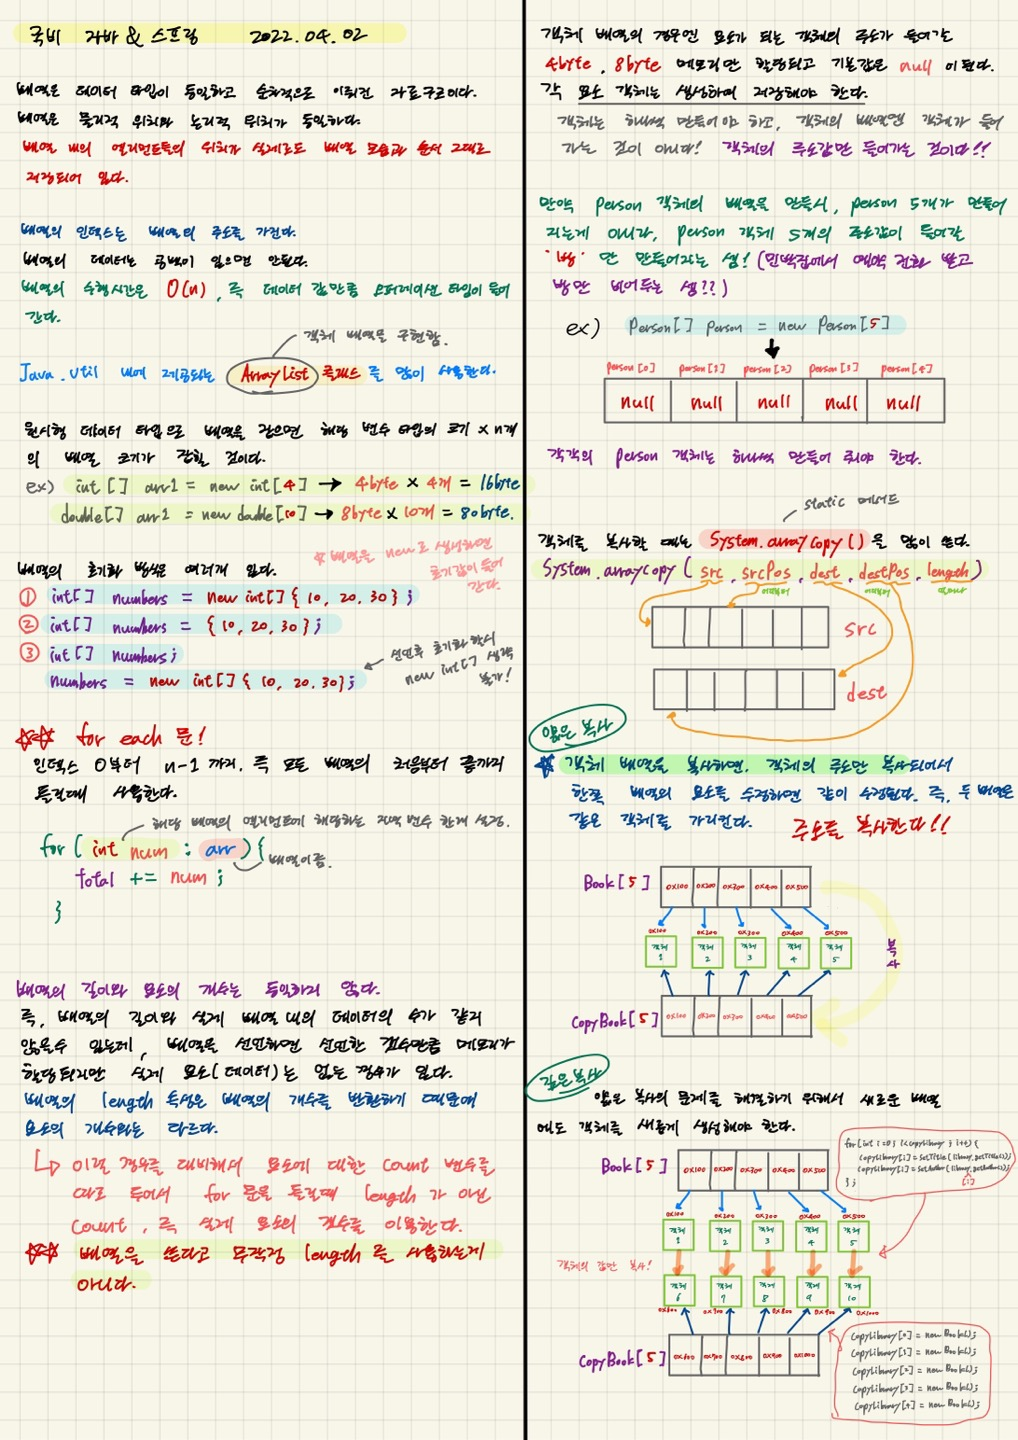 국비 자바 & 스프링 2022.04.02
배열은 데이터 타입이 동일하고 순차적으로 이뤄진 자료구조이다.
배열은 물리적 위치와 논리적 위치가 동일하다.
배열 내의 엘리먼트들의 위치가 실제로도 배열 모습과 순서 그대로
저장되어 있다.
배열의 인덱스는 배열의 주소를 가진다.
배열의 데이터는 공백이 있으면 안된다.
배열의 수행시간은 O(n), 즉 데이터 값만큼 오퍼레이션 타임이 들어
간다.
객체 배열을 구현함.
Java.util 내에 제공되는 ArrayList 클래스를 많이 사용한다.
원시형 데이터 타입으로 배열을 잡으면 해당 변수 타입의 크기 x n개
의 배열 크기가 잡힐 것이다.
ex) int [] arr1 = new int[4] → 4byte × 4개 = 16byte
double[] arr1 = new double[10] → 8byte × 10개 = 80byte.
☆ 배열을 new로 생성하면
초기값이 들어
간다.
배열의 초기화 방식은 여러개 있다.
① int[] numbers = new int[] { 10, 20, 30 } ;
② int[] numbers = { 10, 20, 30 } ;
③ int[] numbers;
numbers = new int[] { 10, 20, 30 } ;
선언후 초기화 할시
new int[] 생략
불가!
☆☆ for each 문!
인덱스 0부터 n-1 까지. 즉 모든 배열의 처음부터 끝까지
돌릴때 사용한다.
해당 배열의 엘리먼트에 해당하는 지역변수 한개 설정.
for ( int num : arr ) {
배열이름.
total += num ;
}
배열의 길이와 요소의 개수는 동일하지 않다.
즉, 배열의 길이와 실제 배열 내의 데이터의 수가 같지
않을수 있는데, 배열을 선언하면 선언한 갯수만큼 메모리가
할당되지만 실제 요소(데이터)는 없는 경우가 있다.
배열의 length 속성은 배열의 개수를 반환하기 때문에
요소의 개수와는 다르다.
↳ 이런 경우를 대비해서 요소에 대한 count 변수를
따로 두어서 for 문을 돌릴때 length 가 아닌
count, 즉 실제 요소의 갯수를 이용한다.
☆☆ 배열을 쓴다고 무작정 length 를 사용하는게
아니다.
객체 배열의 경우엔 요소가 되는 객체의 주소가 들어갈
4byte, 8byte 메모리만 할당되고 기본값은 null 이 된다.
각 요소 객체는 생성하여 저장해야 한다.
객체는 하나씩 만들어야 하고, 객체의 배열엔 객체가 들어
가는 것이 아니다! 객체의 주소값만 들어가는 것이다!!
만약 person 객체의 배열을 만들시, person 5개가 만들어
지는게 아니라, person 객체 5개의 주소값이 들어갈
'방' 만 만들어지는 셈! (민박집에서 예약 전화 받고
방만 비어두는 셈??)
ex) Person[] person = new Person[5]
person[0] person[1] person[2] person[3] person[4]
null null null null null
각각의 person 객체는 하나씩 만들어 줘야 한다.
static 메서드
객체를 복사할 때는 System.arraycopy()을 많이 쓴다.
System.arraycopy ( src, srcPos, dest, destPos, length )
src
dest
얕은 복사
☆ 객체 배열을 복사하면. 객체의 주소만 복사되어서
한쪽 배열의 요소를 수정하면 같이 수정된다. 즉, 두 배열은
같은 객체를 가리킨다. 주소를 복사한다!!
Book[5] 0x100 0x200 0x300 0x400 0x500
0x100 0x200 0x300 0x400 0x500
객체 1 객체 2 객체 3 객체 4 객체 5
복사
CopyBook[5] 0x100 0x200 0x300 0x400 0x500
깊은복사
얕은 복사의 문제를 해결하기 위해서 새로운 배열
에도 객체를 새롭게 생성해야 한다.
for (int i=0; i<copyLibrary ; i++) {
copyLibrary[i] = setTitle(library.getTitle());
copyLibrary[i] = setAuthor(library.getAuthor());
[i]
} ;
Book[5] 0x100 0x200 0x300 0x400 0x500
0x100 0x200 0x300 0x400 0x500
객체 1 객체 2 객체 3 객체 4 객체 5
객체의 값만 복사!
객체 6 객체 7 객체 8 객체 9 객체 10
0x600 0x700 0x800 0x900 0x1000
CopyBook[5] 0x600 0x700 0x800 0x900 0x1000
CopyLibrary[0] = new Book();
CopyLibrary[1] = new Book();
CopyLibrary[2] = new Book();
CopyLibrary[3] = new Book();
CopyLibrary[4] = new Book();